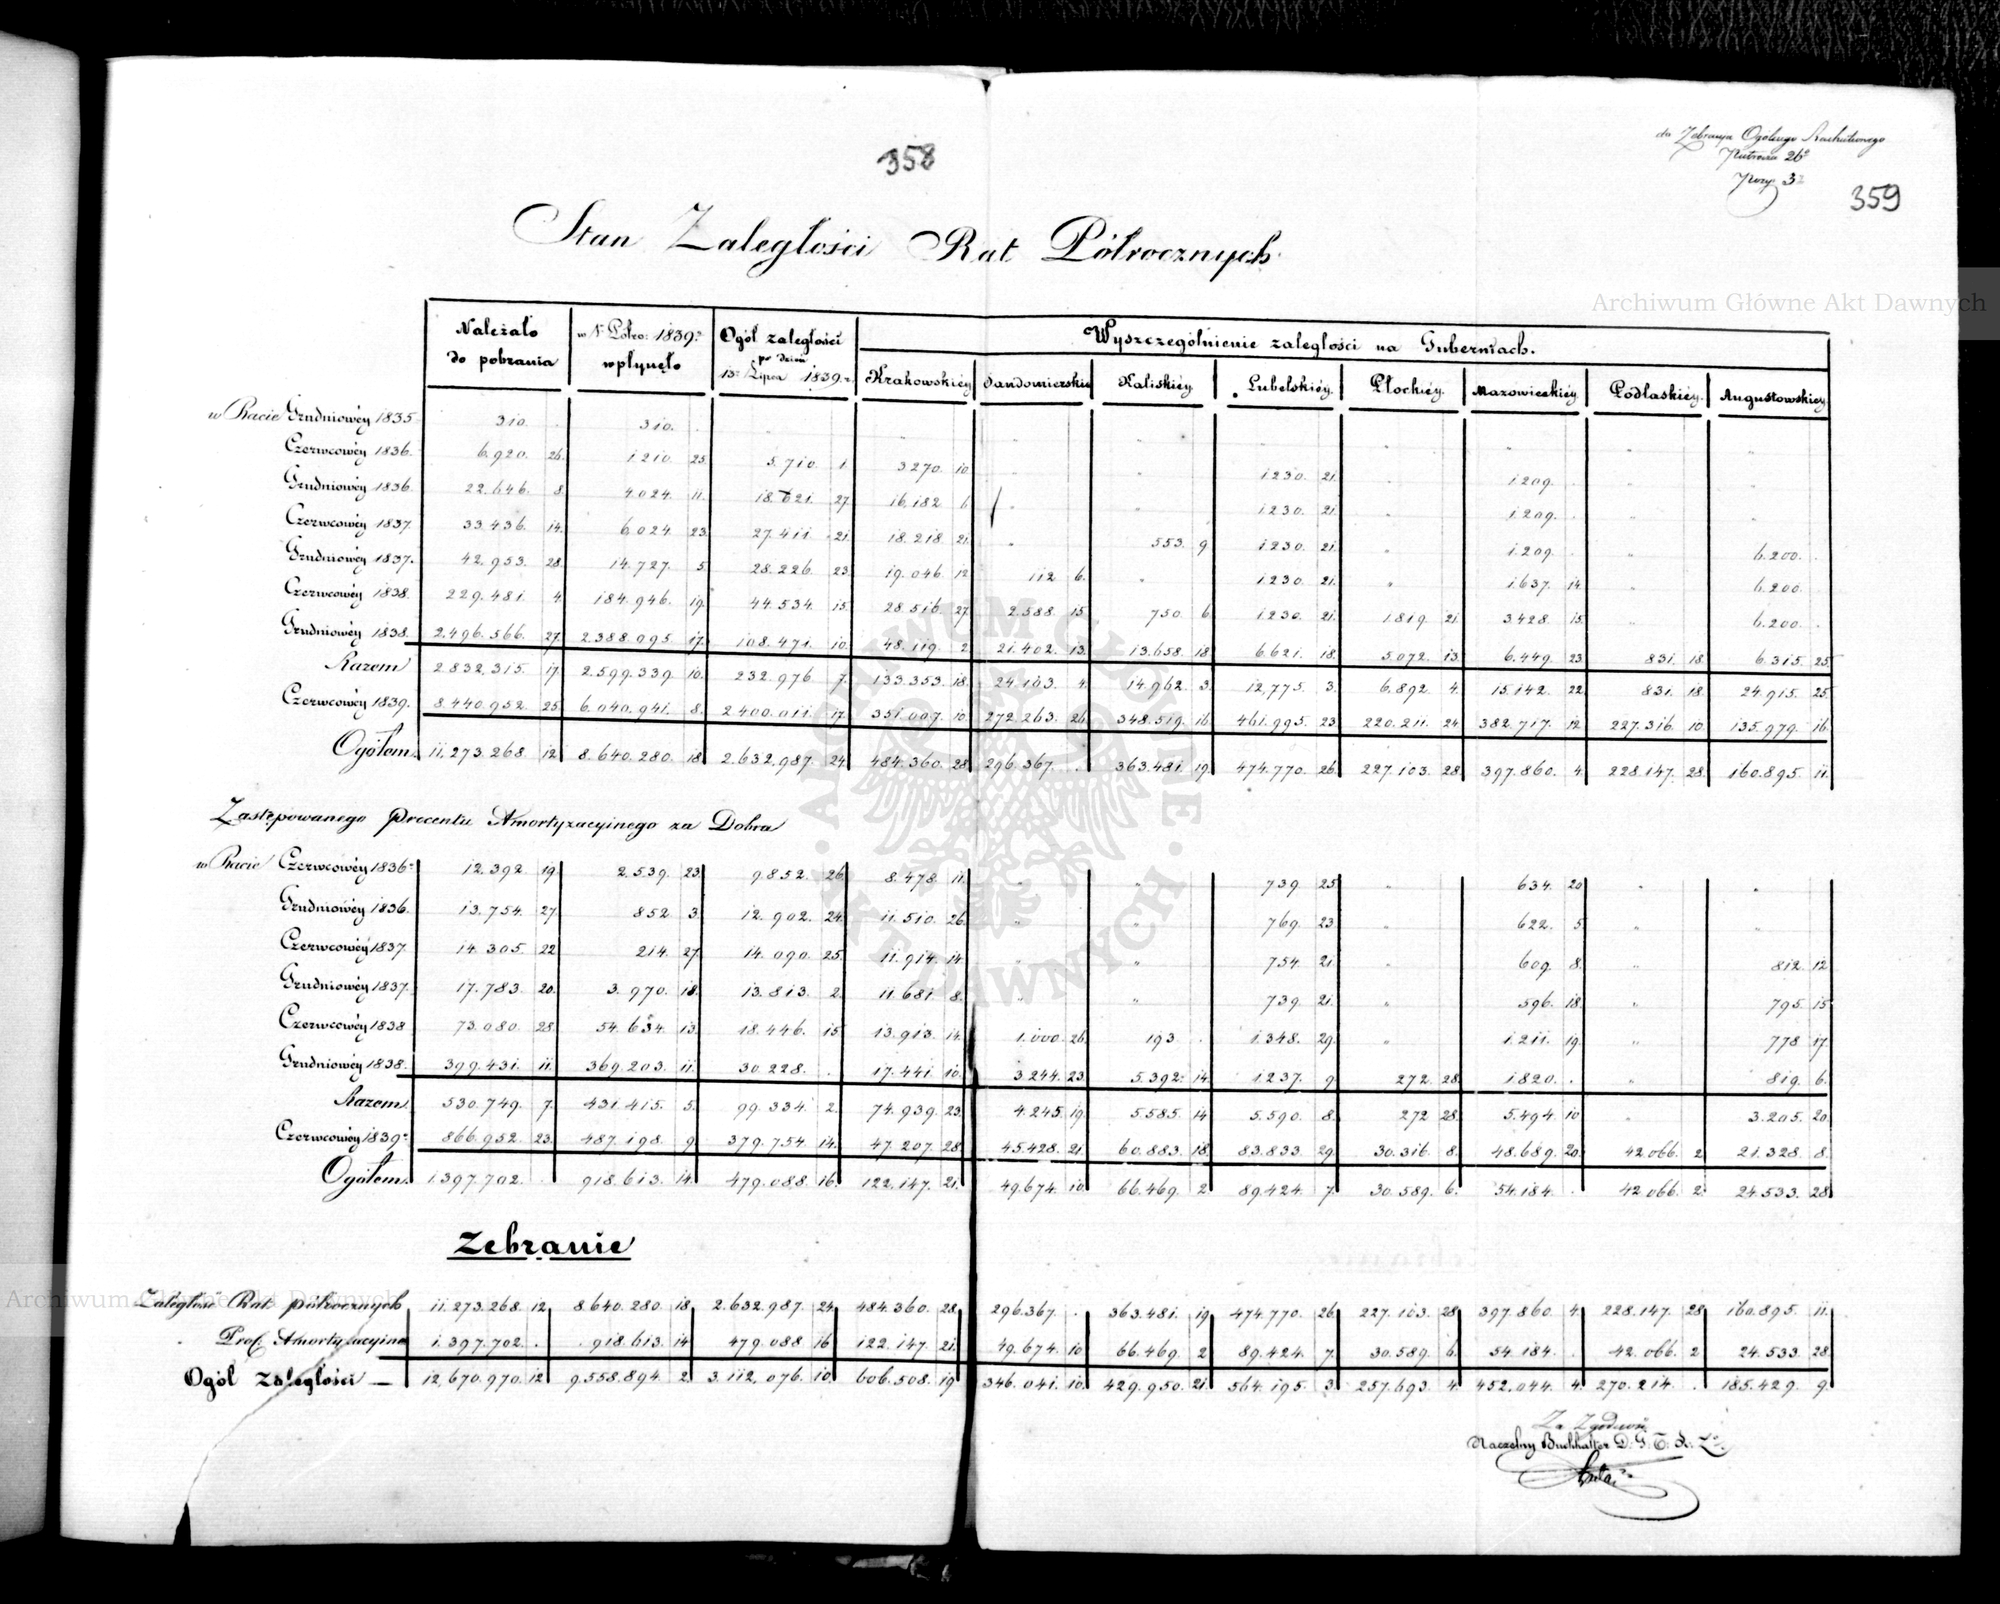 358
do Zebrania Ogólnego Rachunkowego
26
3
359
Stan Zaległości Rat Półrocznych
Archiwum Główne Akt Dawnych
Należało do pobrania | w Iº Półro: 1839º wpłynęło | Ogół zaległości po dzień 13º Lipca 1839 r. | Wyszczególnienie zaległości na Guberniach.
Krakowskiéy | Sandomierskiéy | Kaliskiéy | Lubelskiéy. | Płockiéy. | Mazowieckiéy | Podlaskiéy. | Augustowskiéy
w Racie Grudniowéy 1835 310. . 310. .
Czerwcowéy 1836. 6.920. 26. 1.210. 25. 5.710. 1. 3270. 10 " " 1.230. 21. " 1.209. . " "
Grudniowéy 1836. 22.646. 8. 4.024. 11. 18.621. 27. 16.182. 6 " " 1.230. 21. " 1.209. . " "
Czerwcowéy 1837. 33.436. 14. 6.024. 23. 27.411. 21. 18.218. 21. " 553. 9 1.230. 21. " 1.209. . " 6.200. .
Grudniowéy 1837. 42.953. 28. 14.727. 5. 28.226. 23. 19.046. 12 112. 6. " 1.230. 21. " 1.637. 14 " 6.200. .
Czerwcowéy 1838. 229.481. 4. 184.946. 19. 44.534. 15. 28.516. 27. 2.588. 15. 750. 6 1.230. 21. 1.819. 21. 3.428. 15. " 6.200. .
Grudniowéy 1838. 2.496.566. 27. 2.388.095. 17. 108.471. 10. 48.119. 2. 21.402. 13. 13.658. 18. 6.621. 18. 5.072. 13. 6.449. 23. 831. 18. 6.315. 25.
Razem 2.832.315. 17. 2.599.339. 10. 232.976. 7. 133.353. 18. 24.103. 4. 14.962. 3. 12.775. 3. 6.892. 4. 15.142. 22. 831. 18. 24.915. 25.
Czerwcowéy 1839. 8.440.952. 25. 6.040.941. 8. 2.400.011. 17. 351.007. 10. 272.263. 26. 348.519. 16. 461.995. 23. 220.211. 24. 382.717. 12. 227.316. 10. 135.979. 16.
Ogółem. 11.273.268. 12. 8.640.280. 18. 2.632.987. 24. 484.360. 28. 296.367. . 363.481. 19. 474.770. 26. 227.103. 28. 397.860. 4. 228.147. 28. 160.895. 11.
Zastępowanego Procentu Amortyzacyinego za Dobra
w Racie Czerwcowéy 1836 12.392. 19. 2.539. 23. 9.852. 26. 8.478. 11. " " 739. 25. " 634. 20. " "
Grudniowéy 1836. 13.754. 27. 852. 3. 12.902. 24. 11.510. 26. " " 769. 23. " 622. 5. " "
Czerwcowéy 1837 14.305. 22 214. 27. 14.090. 25. 11.914. 14 " " 754. 21. " 609. 8. " 812. 12
Grudniowéy 1837. 17.783. 20. 3.970. 18. 13.813. 2. 11.681. 8. " " 739. 21. " 596. 18. " 795. 15
Czerwcowéy 1838 73.080. 28. 54.634. 13. 18.446. 15. 13.913. 14. 1.000. 26. 193. . 1.348. 29. " 1.211. 19. " 778. 17.
Grudniowéy 1838. 399.431. 11. 369.203. 11. 30.228. . 17.441. 10. 3.244. 23. 5.392. 14. 1.237. 9. 272. 28. 1.820. . " 819. 6.
Razem. 530.749. 7. 431.415. 5. 99.334. 2. 74.939. 23. 4.245. 19. 5.585. 14 5.590. 8. 272. 28. 5.494. 10 " 3.205. 20.
Czerwcowéy 1839 866.952. 23. 487.198. 9. 379.754. 14. 47.207. 28. 45.428. 21. 60.883. 18. 83.833. 29. 30.316. 8. 48.689. 20. 42.066. 2 21.328. 8.
Ogółem. 1.397.702. . 918.613. 14. 479.088. 16. 122.147. 21. 49.674. 10. 66.469. 2. 89.424. 7. 30.589. 6. 54.184. . 42.066. 2. 24.533. 28.
Zebranie
Zaległość Rat półrocznych 11.273.268. 12. 8.640.280. 18 2.632.987. 24 484.360. 28. 296.367. . 363.481. 19 474.770. 26. 227.103. 28 397.860. 4. 228.147. 28 160.895. 11.
" Proc. Amortyzacyine 1.397.702. . 918.613. 14 479.088. 16 122.147. 21. 49.674. 10 66.469. 2 89.424. 7. 30.589. 6. 54.184. . 42.066. 2 24.533. 28.
Ogół Zaległości — 12,670.970. 12 9.558.894. 2 3.112.076. 10. 606.508. 19 346.041. 10. 429.950. 21. 564.195. 3. 257.693. 4. 452.044. 4. 270.214. . 185.429. 9.
Archiwum Główne Akt Dawnych
Za Zgodność
Naczelny Buchhalter D. G. T. K. Z.
ARCHIWUM GŁÓWNE AKT DAWNYCH